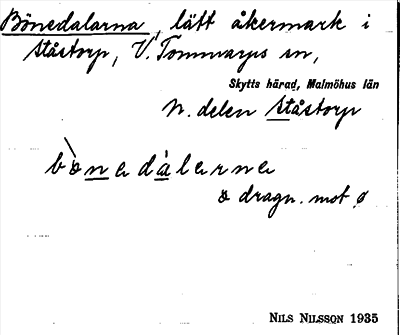 Bönedalarna, lätt åkermark i
Ståstorp, V. Tommarps sn,
Skytts härad, Malmöhus län
N. delen Ståstorp
bònedàlarna
ɤ dragn. mot ø
NILS NILSSON 1935